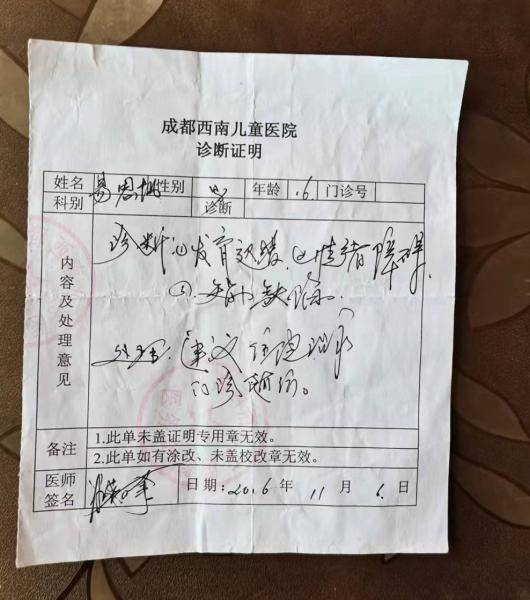 成都西南儿童医院
诊断证明
姓名 易思 性别 女 年龄 6 门诊号
科别 诊断
内容及处理意见
诊断:①发育迟缓、②情绪障碍、
③
处理:建议住院
门诊随访。
备注 1.此单未盖证明专用章无效。
2.此单如有涂改、未盖校改章无效。
医师签名 日期:2016 年 11 月 6 日